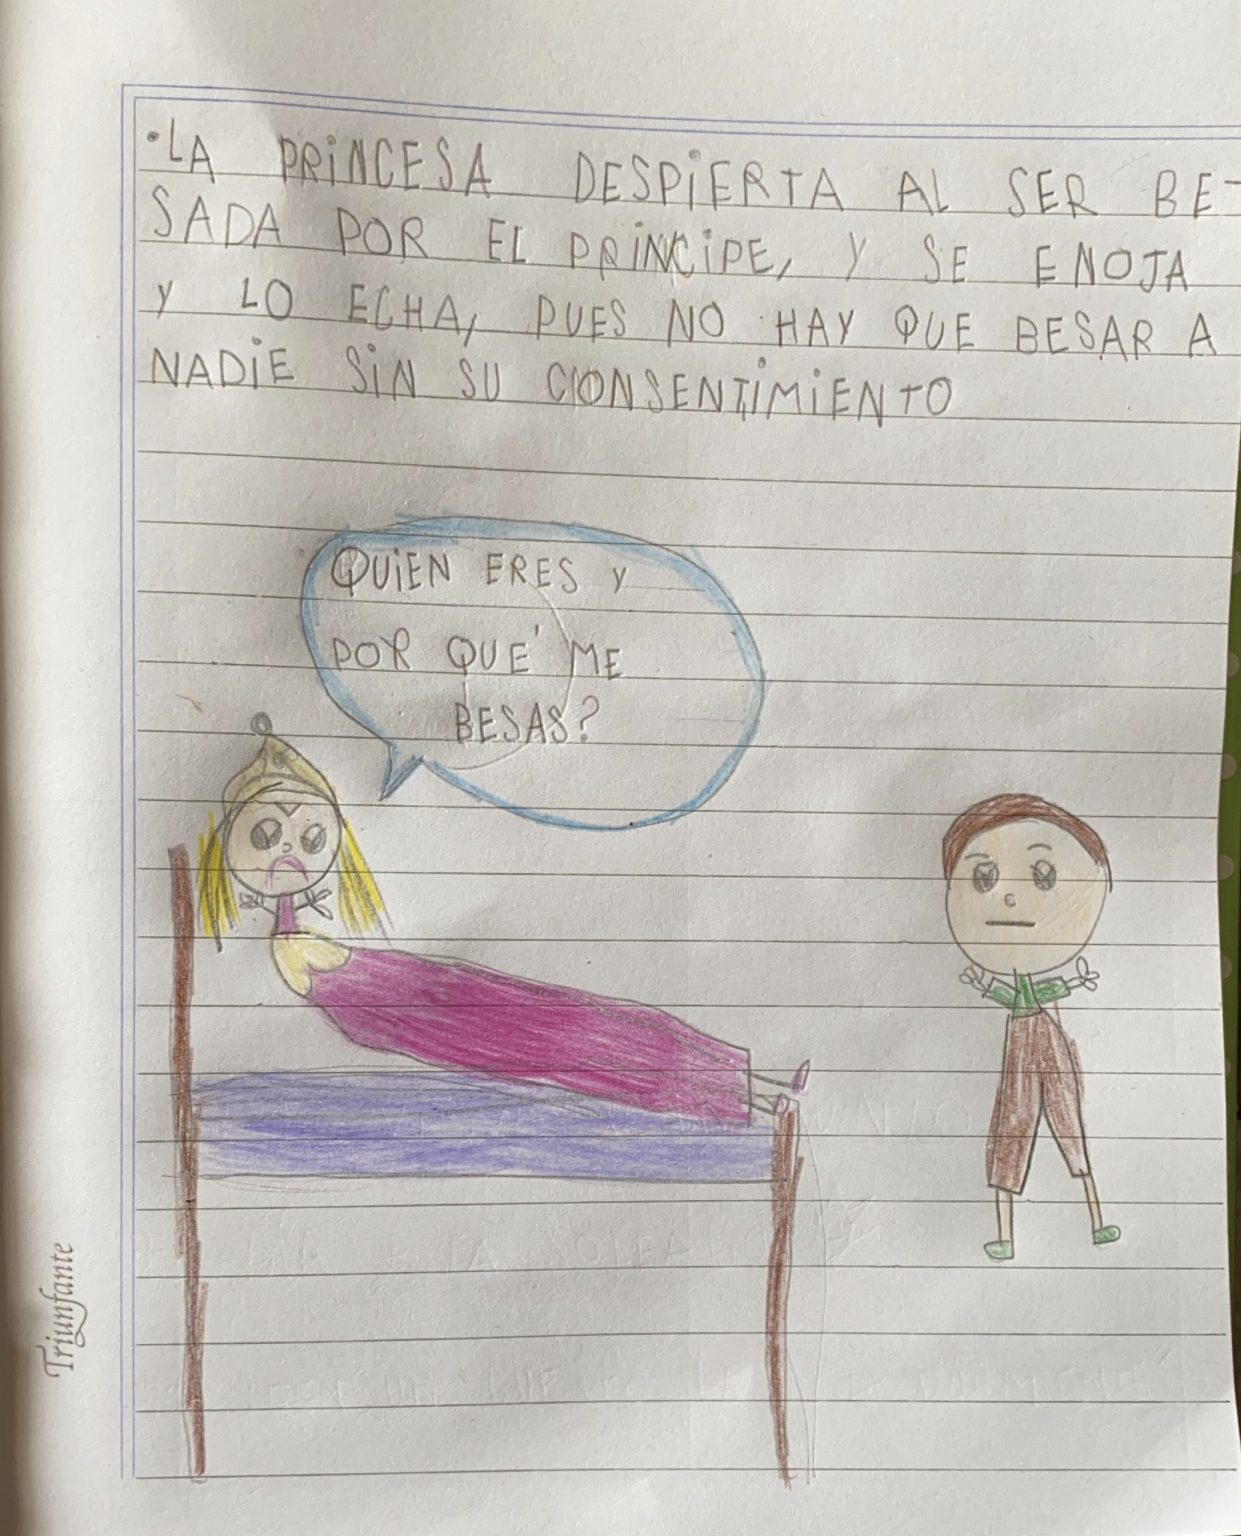 •LA PRINCESA DESPIERTA AL SER BE-
SADA POR EL PRINCIPE, Y SE ENOJA
Y LO ECHA, PUES NO HAY QUE BESAR A
NADIE SIN SU CONSENTIMIENTO
QUIEN ERES Y
POR QUÉ ME
BESAS?
Triunfante